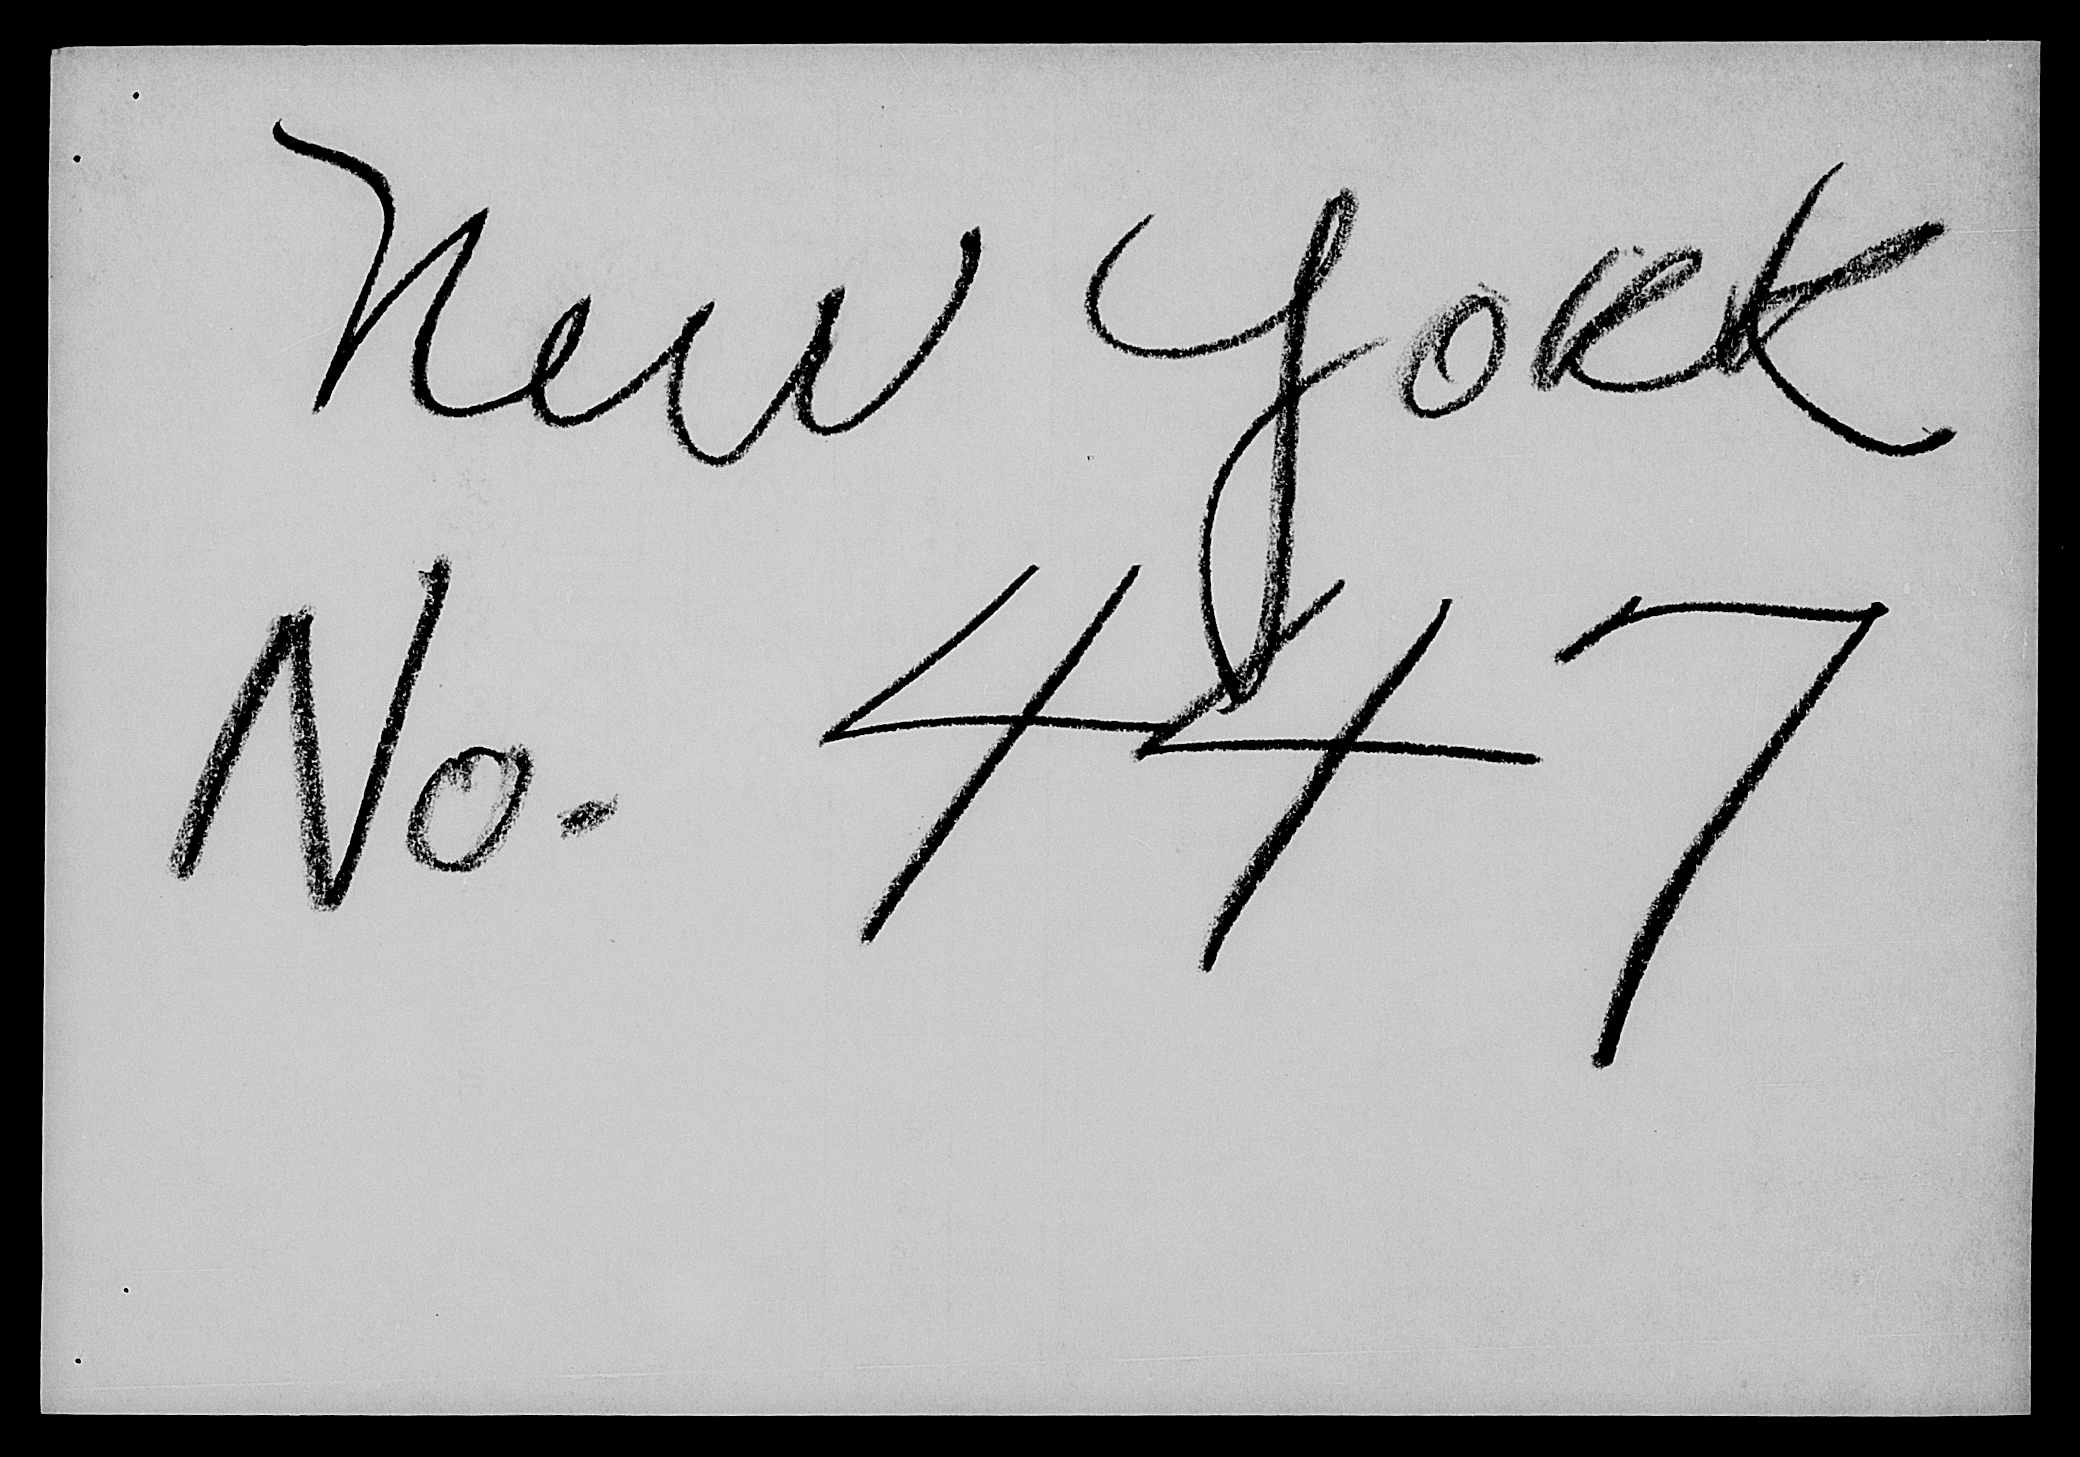 New York
No. 447